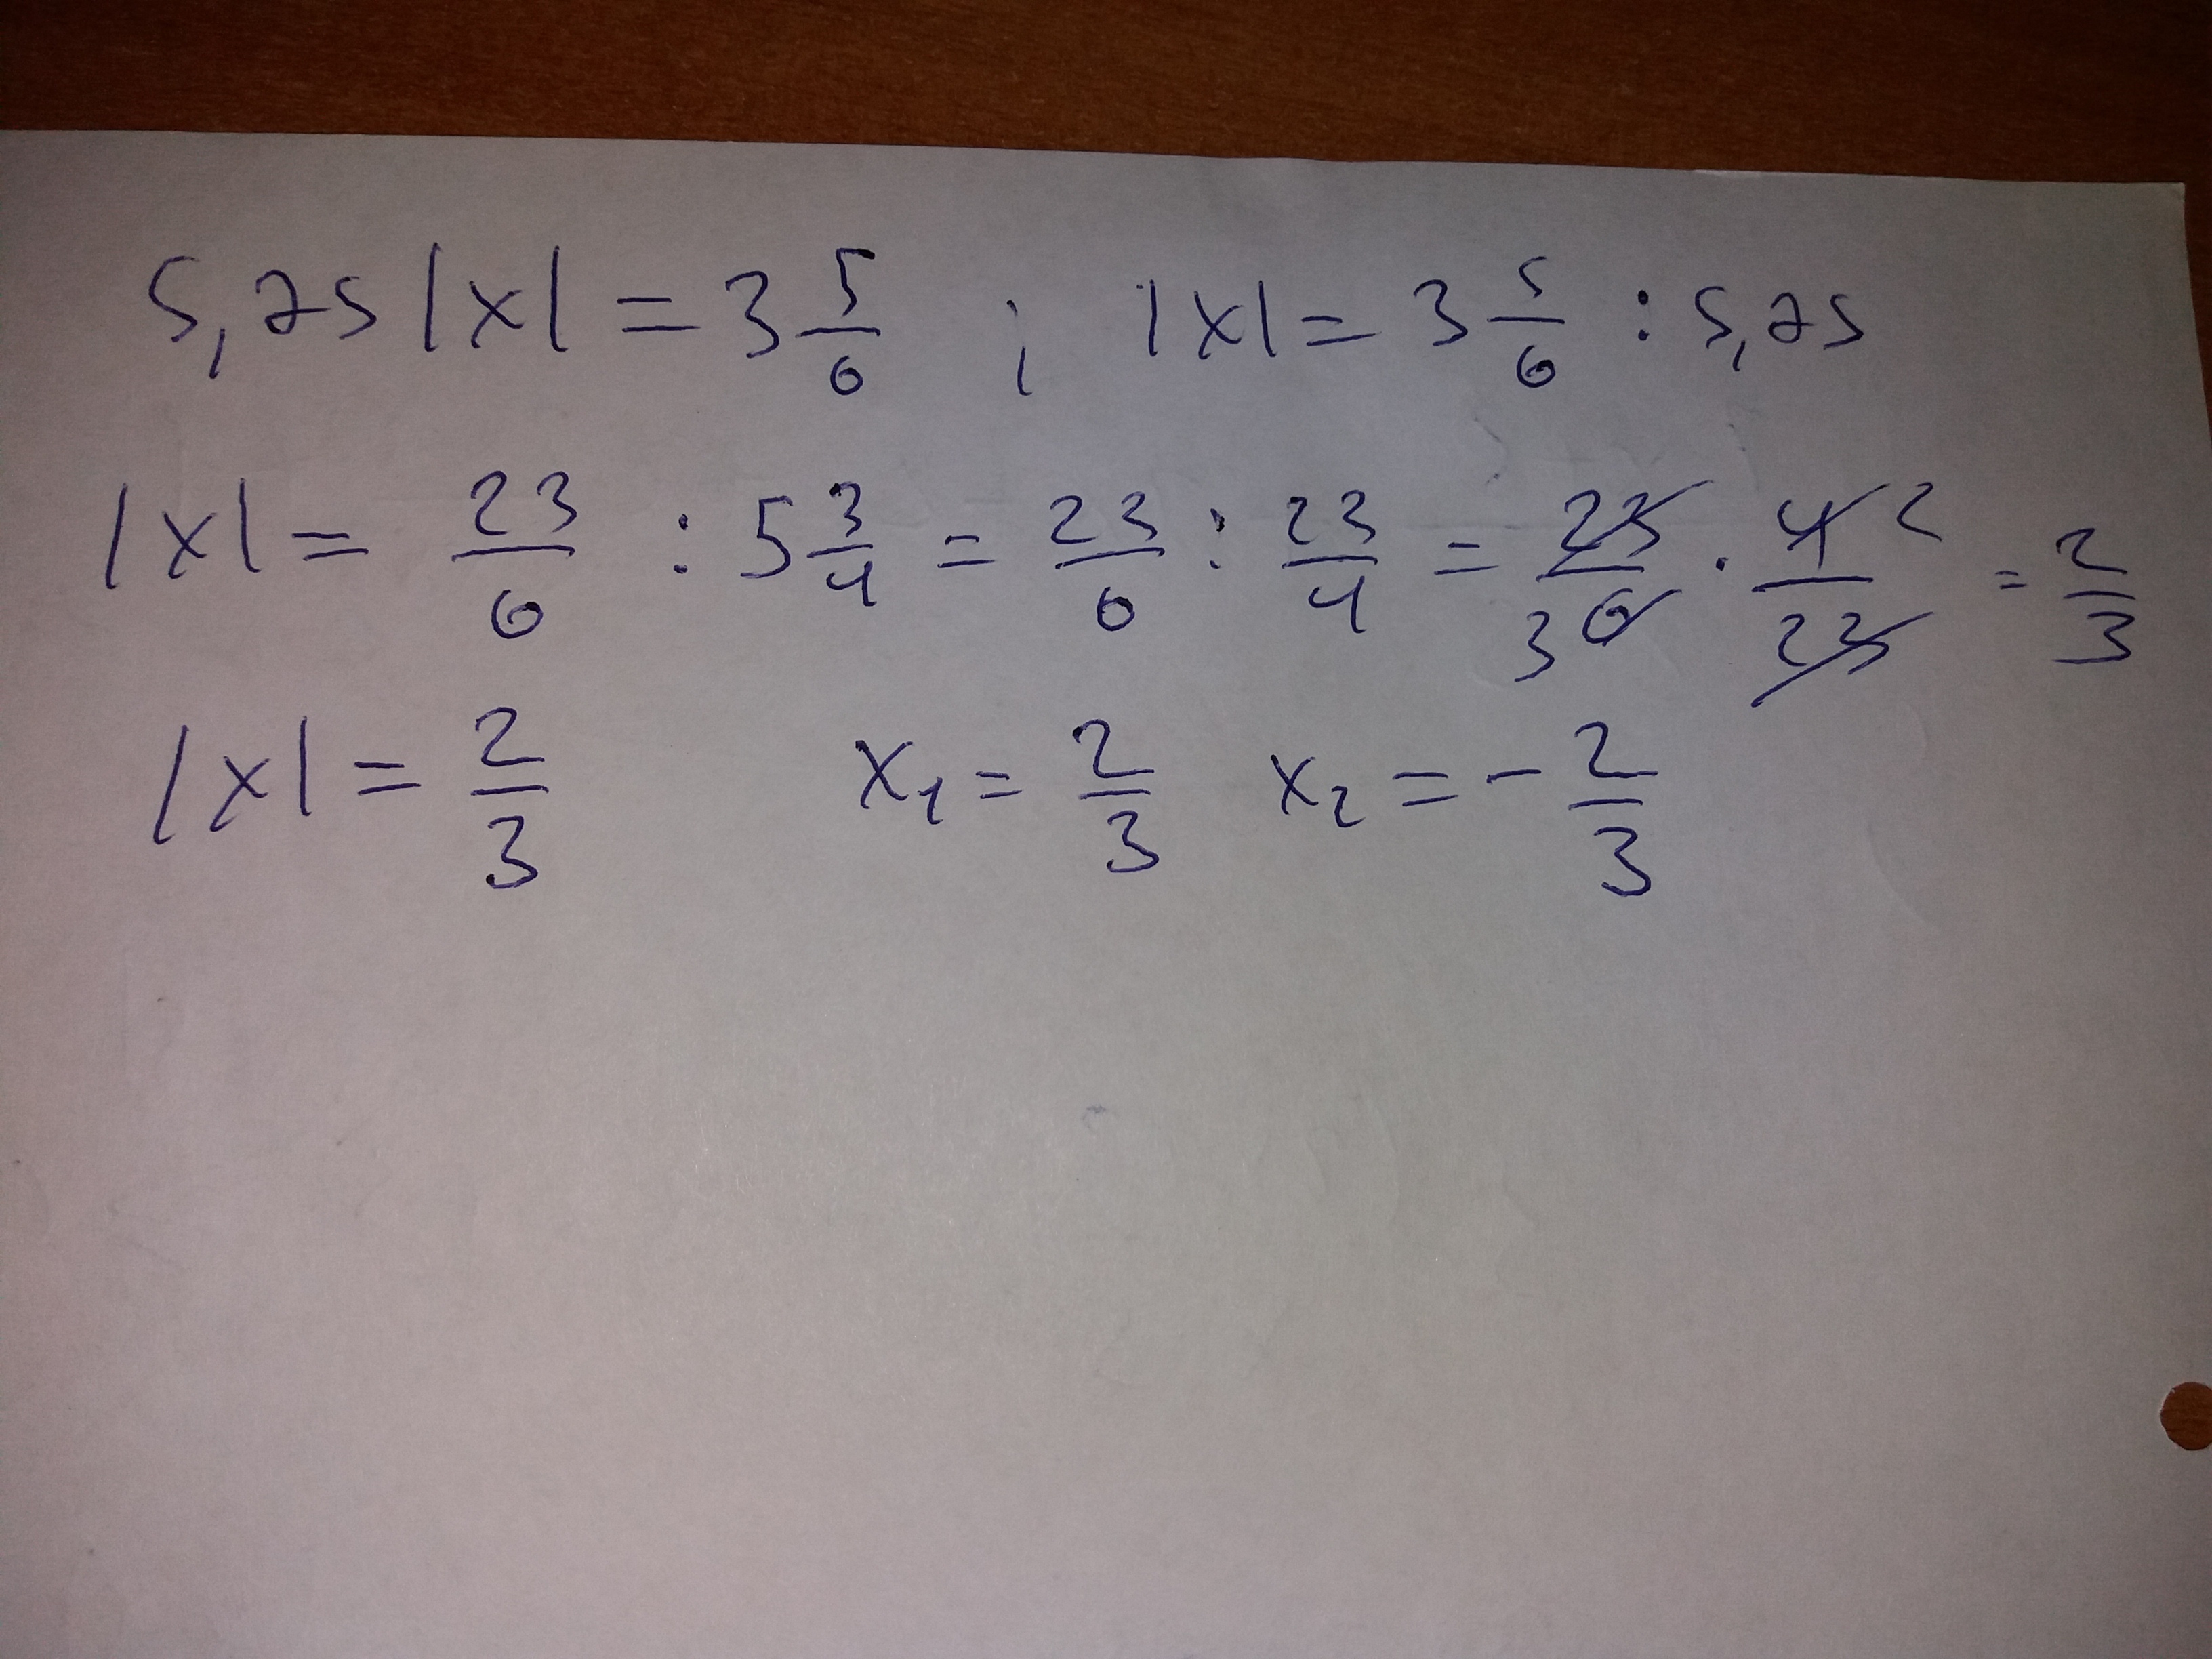 5,75 |x| = 3 5/6 ; |x| = 3 5/6 : 5,75
|x| = 23/6 : 5 3/4 = 23/6 : 23/4 = 23/6 3 · 4/23 2 = 2/3
|x| = 2/3 x₁ = 2/3 x₂ = - 2/3